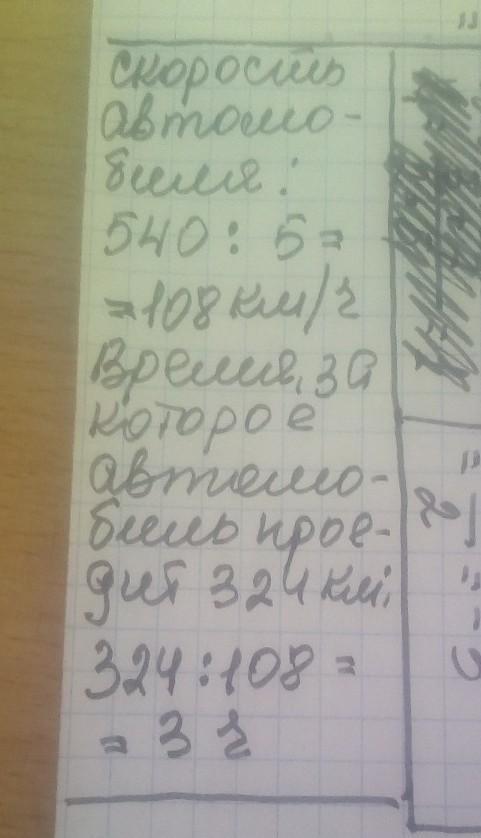 скорость
автомо-
биля:
540 : 5 =
= 108 км/ч
Время, за
которое
автомо-
биль прое-
дит 324 км:
324 : 108 =
= 3 ч